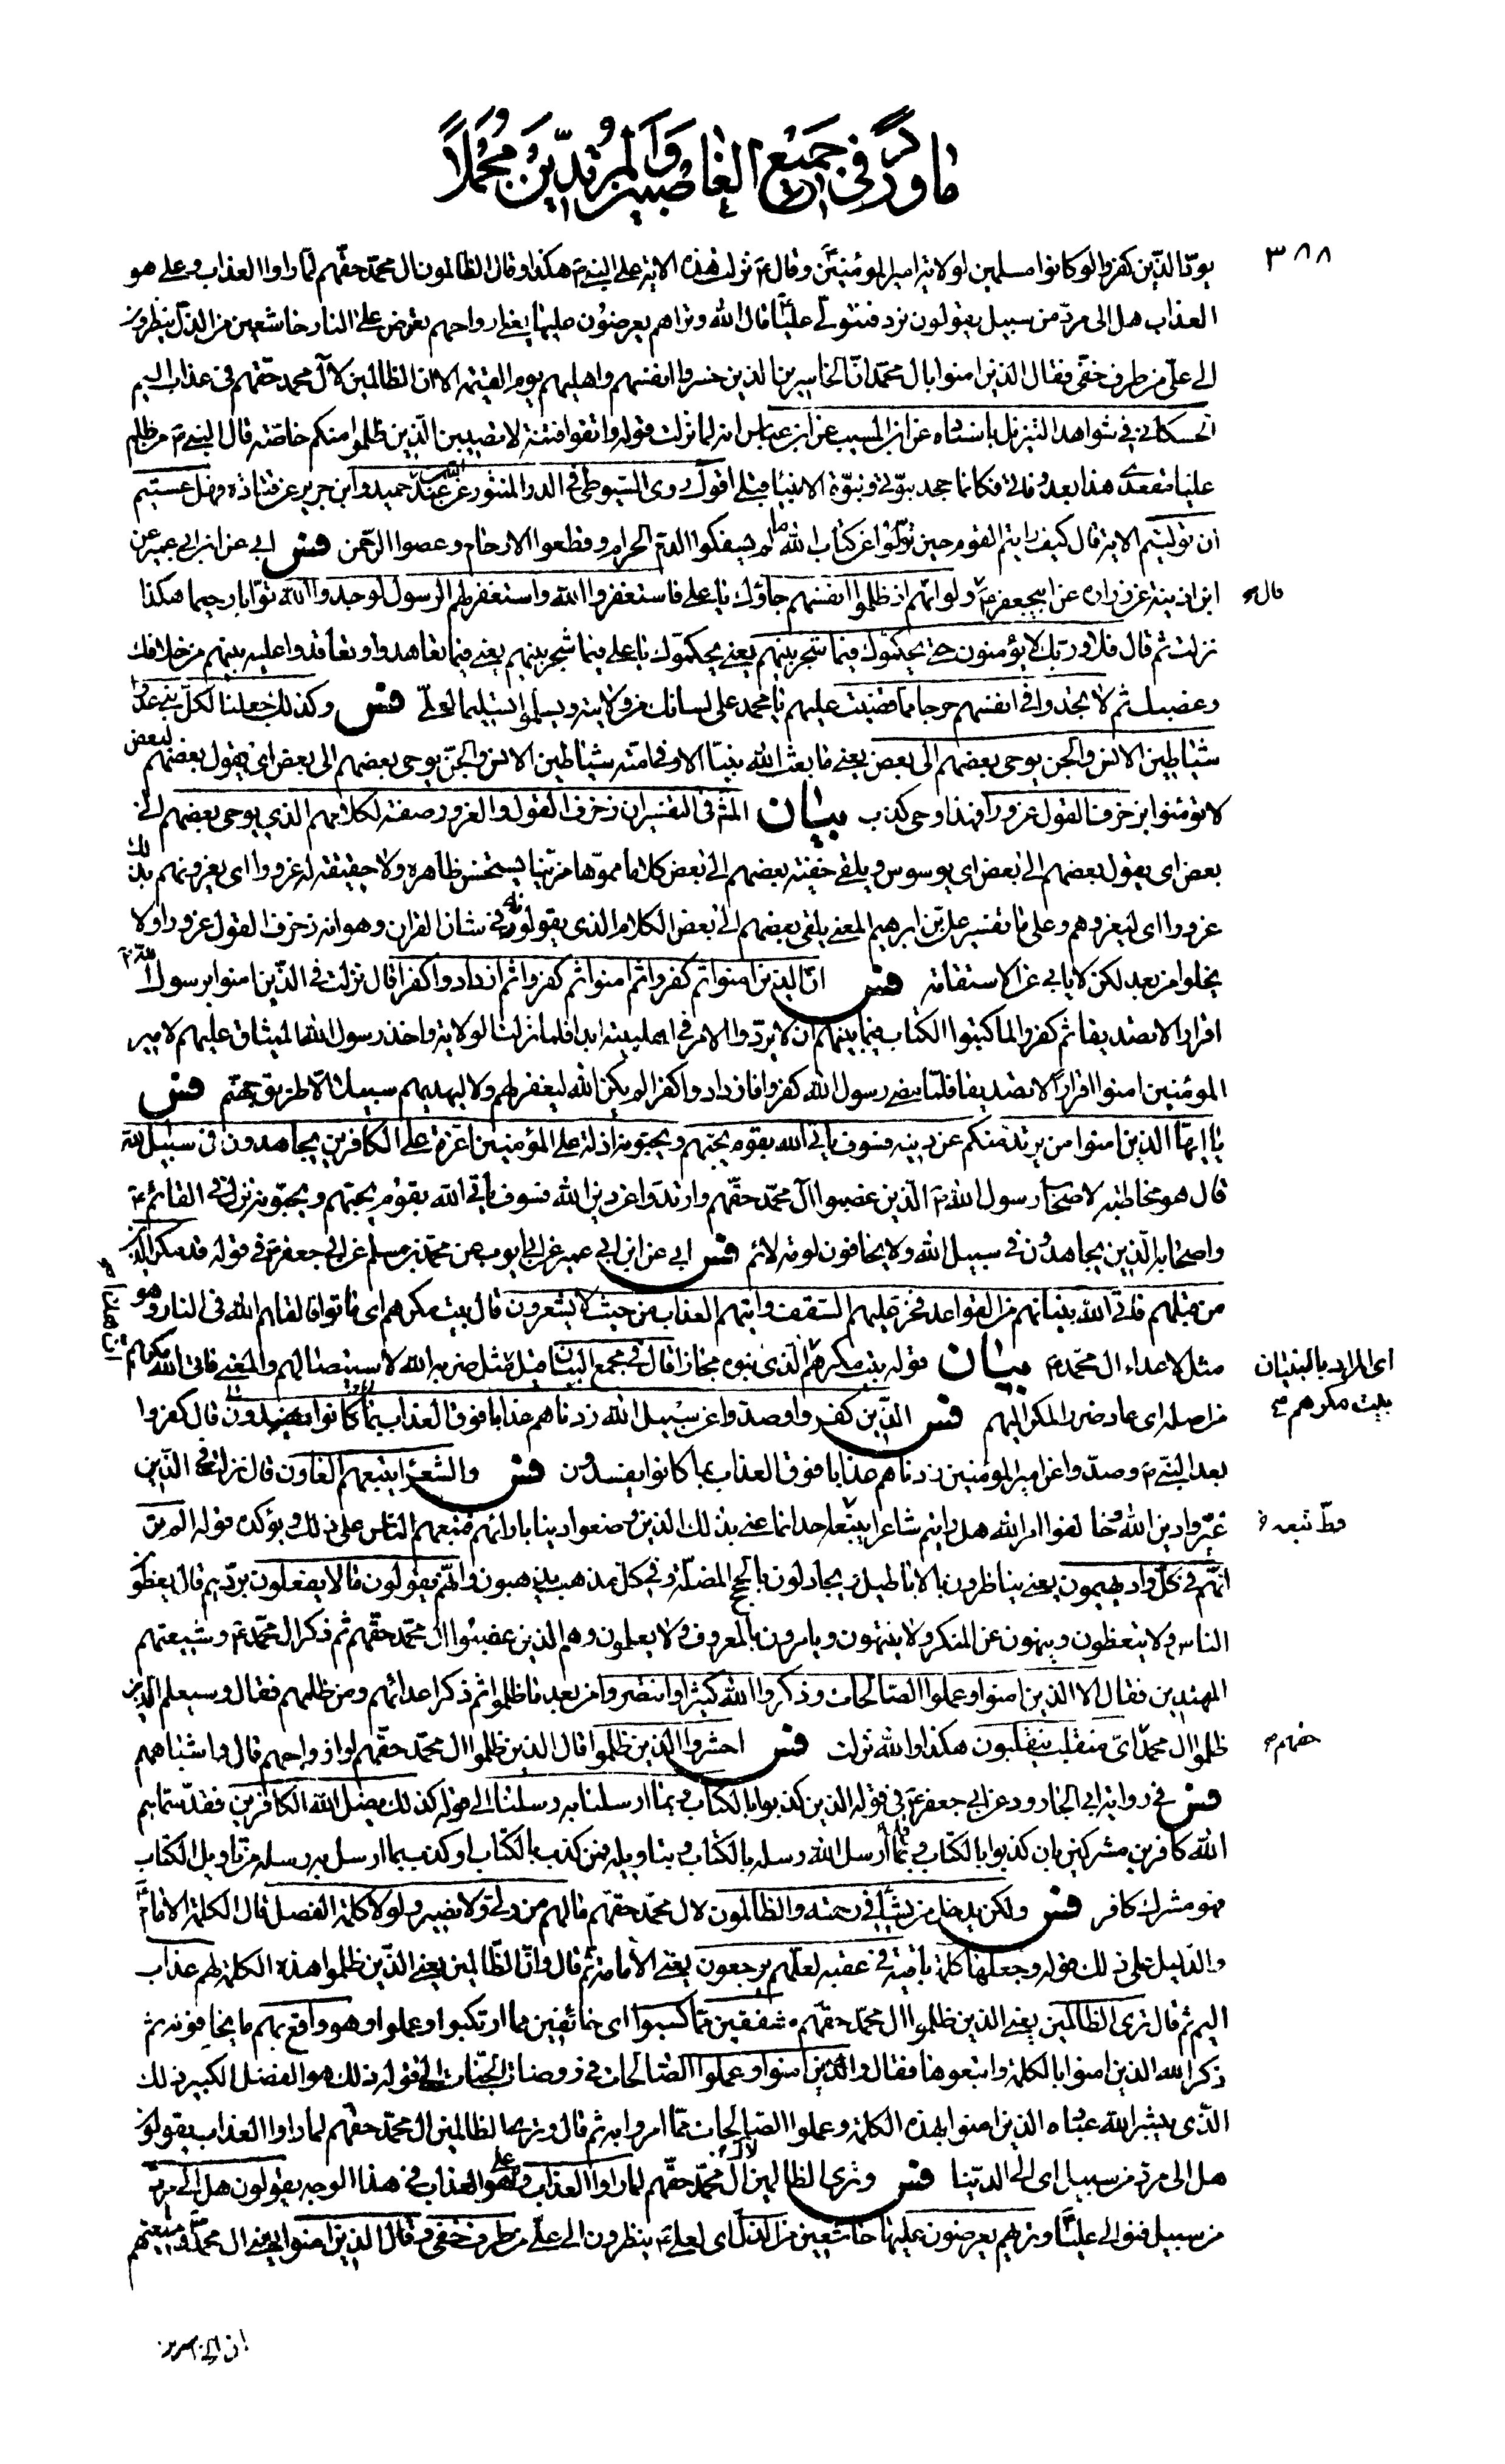 ما ورد في جميع الغاصبين والمرتدين مجملا
٣٨٨
يودّ الذين كفروا لو كانوا مسلمين لولاية امير المؤمنين وقال ع نزلت هذه الاية على النبي ص هكذا وقال الظالمون ال محمّد حقّهم لمّا راوا العذاب وعلي هو
العذاب هل الى مردّ من سبيل يقولون نردّ فنتولّى عليّا قال الله وتراهم يعرضون عليها يعني ارواحهم تعرض على النار خاشعين من الذلّ ينظرون
الى عليّ من طرف خفّي فقال الذين امنوا بال محمّد انّ الخاسرين الذين خسروا انفسهم واهليهم يوم القيمة الا ان الظالمين لآل محمد حقهم في عذاب اليم
الحسكاني في شواهد التنزيل باسناده عن ابن المسيب عن ابن عباس انه لما نزلت قوله واتقوا فتنة لا تصيبن الذين ظلموا منكم خاصّة قال النبي ص من ظلم
عليا مقعدي هذا بعد وفاتي فكانما جحد نبوّتي ونبوّة الانبياء قبلي اقول روى السيوطي في الدر المنثور عن عبد حميد وابن جرير عن قتادة فهل عسيتم
ان توليتم الاية قال كيف رايتم القوم حين تولّوا عن كتاب الله الم يسفكوا الدم الحرام وقطعوا الارحام وعصوا الرحمن فس ابي عن ابن ابي عمير عن
ابن اذينة عن زرارة عن ابيجعفر ع ولو انّهم اذ ظلموا انفسهم جاؤك يا علي فاستغفروا الله واستغفر لهم الرسول لوجدوا الله توّابا رحيما هكذا
قال
نزلت ثم قال فلا وربّك لا يؤمنون حتى يحكموك فيما شجر بينهم يعني يحكموك يا علي فيما شجر بينهم يعني فيما تعاهدوا وتعاقدوا عليه بينهم من خلافك
وغصبك ثم لا يجدوا في انفسهم حرجا مما قضيت عليهم يا محمد على لسانك من ولايته ويسلموا تسليما لعليّ فس وكذلك جعلنا لكل نبي عدوّا
شياطين الانس والجن يوحى بعضهم الى بعض يعني ما بعث الله نبيّا الا وفي امته شياطين الانس والجنّ يوحى بعضهم الى بعض اى يقول بعضهم لبعض
لا تؤمنوا بزخرف القول غرورا فهذا وحى كذب بيان المشهور في التفسير ان زخرف القول والغرور صفة لكلامهم الذي يوحى بعضهم الى
بعض اى يقول بعضهم الى بعض اى يوسوس ويلقى خفية بعضهم الى بعض كلاما مموّها مزيّنا يستحسن ظاهره ولا حقيقة له غرورا اى يغرونهم بذلك
غرورا اى ليغروهم وعلى ما تفسير عليّ بن ابرهيم المعنى يلقى بعضهم الى بعض الكلام الذي يقولونه في شان القران وهو انه زخرف القول غرورا ولا
يخلوا من بعد لكن لا يابى عن الاستقامة فس انّ الذين امنوا ثم كفروا ثم امنوا ثم كفروا ثم ازدادوا كفرا قال نزلت في الذين امنوا برسول الله ص
اقرارا لا تصديقا ثم كفروا لما كتبوا الكتاب فيما بينهم ان لا يردّوا الامر في اهل بيته ابدا فلما نزلت الولاية واخذ رسول الله الميثاق عليهم لامير
المؤمنين امنوا اقرارا لا تصديقا فلمّا مضى رسول الله كفروا فازدادوا كفرا لم يكن الله ليغفر لهم ولا ليهديهم سبيلا الّا طريق جهنم فس
يا ايّها الذين امنوا من يرتد منكم عن دينه فسوف ياتي الله بقوم يحبّهم ويحبّونه اذلة على المؤمنين اعزّة على الكافرين يجاهدون في سبيل الله
قال هو مخاطبة لاصحاب رسول الله ص الذين غصبوا آل محمّد حقّهم وارتدّوا عن دين الله فسوف ياتي الله بقوم يحبّهم ويحبّونه نزلت في القائم ع
واصحابه الّذين يجاهدون في سبيل الله ولا يخافون لومة لائم فس ابي عن ابن ابي عمير عن ابي ايوب عن محمّد بن مسلم عن ابي جعفر ع في قوله قد مكر الذين
من قبلهم فاتى الله بنيانهم من القواعد فخرّ عليهم السّقف واتيهم العذاب من حيث لا يشعرون قال بيت مكرهم اى ماتوا فالقاهم الله في النار وهو
مثل لاعداء ال محمّد ص بيان قوله بيت مكرهم الّذى بنوه مجازا قال في مجمع البيان قيل مثل ضربه الله لاستيصالهم والمعنى فاتى الله مكرهم
اى المراد بالبنيان
بيت مكرهم
من اصله اى عاد ضرر المكر اليهم فس الذّين كفروا وصدّوا عن سبيل الله زدناهم عذابا فوق العذاب بما كانوا يفسدون قال كفروا
بعد النبيّ ص وصدّوا عن امير المؤمنين زدناهم عذابا فوق العذاب بما كانوا يفسدون فس والشعراء يتبعهم الغاون قال نزلت في الذين
غيّروا دين الله وخالفوا امر الله هل رايتم شاعرا يتبعه احد انما عنى بذلك الذين وضعوا دينا بارائهم فتبعهم الناس على ذلك ويؤكده قوله الم تر
قطّ تبعه
انهّم في كلّ واد يهيمون يعني يناظرون بالاباطيل ويجادلون بالحجج المضلّة وفي كل مذهب يذهبون وانهّم يقولون ما لا يفعلون قال يعظون
الناس ولا يتعظون وينهون عن المنكر ولا ينتهون ويامرون بالمعروف ولا يعملون وهم الذين غصبوا ال محمّد حقّهم ثم ذكر ال محمّد ع وشيعتهم
المهتدين فقال الا الذين امنوا وعملوا الصّالحات وذكروا الله كثيرا وانتصروا من بعد ما ظلموا ثم ذكر اعدائهم ومن ظلمهم فقال وسيعلم الذين
ظلموا ال محمّد اىّ منقلب ينقلبون هكذا والله نزلت فس احشروا الذين ظلموا قال الذين ظلموا ال محمّد حقّهم وازواجهم قال واشباههم
حقهم
فس في رواية ابي الجارود عن ابي جعفر ع في قوله الذين كذبوا بالكتاب وبما ارسلنا به رسلنا الى قوله كذلك يضلّ الله الكافرين فقد سمّاهم
الله كافرين مشركين بان كذبوا بالكتاب وقد ارسل الله رسله بالكتاب وبتاويله فمن كذب بالكتاب او كذب بما ارسل به رسله من تاويل الكتاب
فهو مشرك كافر فس ولكن يدخل من يشاء في رحمته والظالمون لال محمّد حقّهم ما لهم من وليّ ولا نصير ولولا كلمة الفصل قال الكلمة الامام
والدّليل على ذلك قوله وجعلها كلمة باقية في عقبه لعلّهم يرجعون يعني الامامة ثم قال وانّ الظّالمين يعني الذّين ظلموا هذه الكلمة لهم عذاب
اليم ثم قال ترى الظالمين يعني الذين ظلموا ال محمّد حقّهم مشفقين ممّا كسبوا اى خائفين مما ارتكبوا وعملوا وهو واقع بهم ما يخافونه ثم
ذكر الله الذين امنوا بالكلمة واتبعوها فقال والذين امنوا وعملوا الصّالحات في روضات الجنّات الى قوله ذلك هو الفضل الكبير ذلك
الذّى يبشر الله عباده الذين امنوا بهذه الكلمة وعملوا الصّالحات ممّا امروا به ثم قال وترى الظالمين ال محمّد حقّهم لما راوا العذاب يقولون
هل الى مردّ من سبيل اى الى الدّنيا فس وترى الظالمين ال محمّد حقّهم لما راوا العذاب وعلي هو العذاب في هذا الوجه يقولون هل الى مردّ
من سبيل فنوالى عليّا وتريهم يعرضون عليها خاشعين من الذلّ اى لعلي ع ينظرون الى عليّ من طرف خفى وقال الذين امنوا يعني ال محمّد وشيعتهم
ان الخاسرين